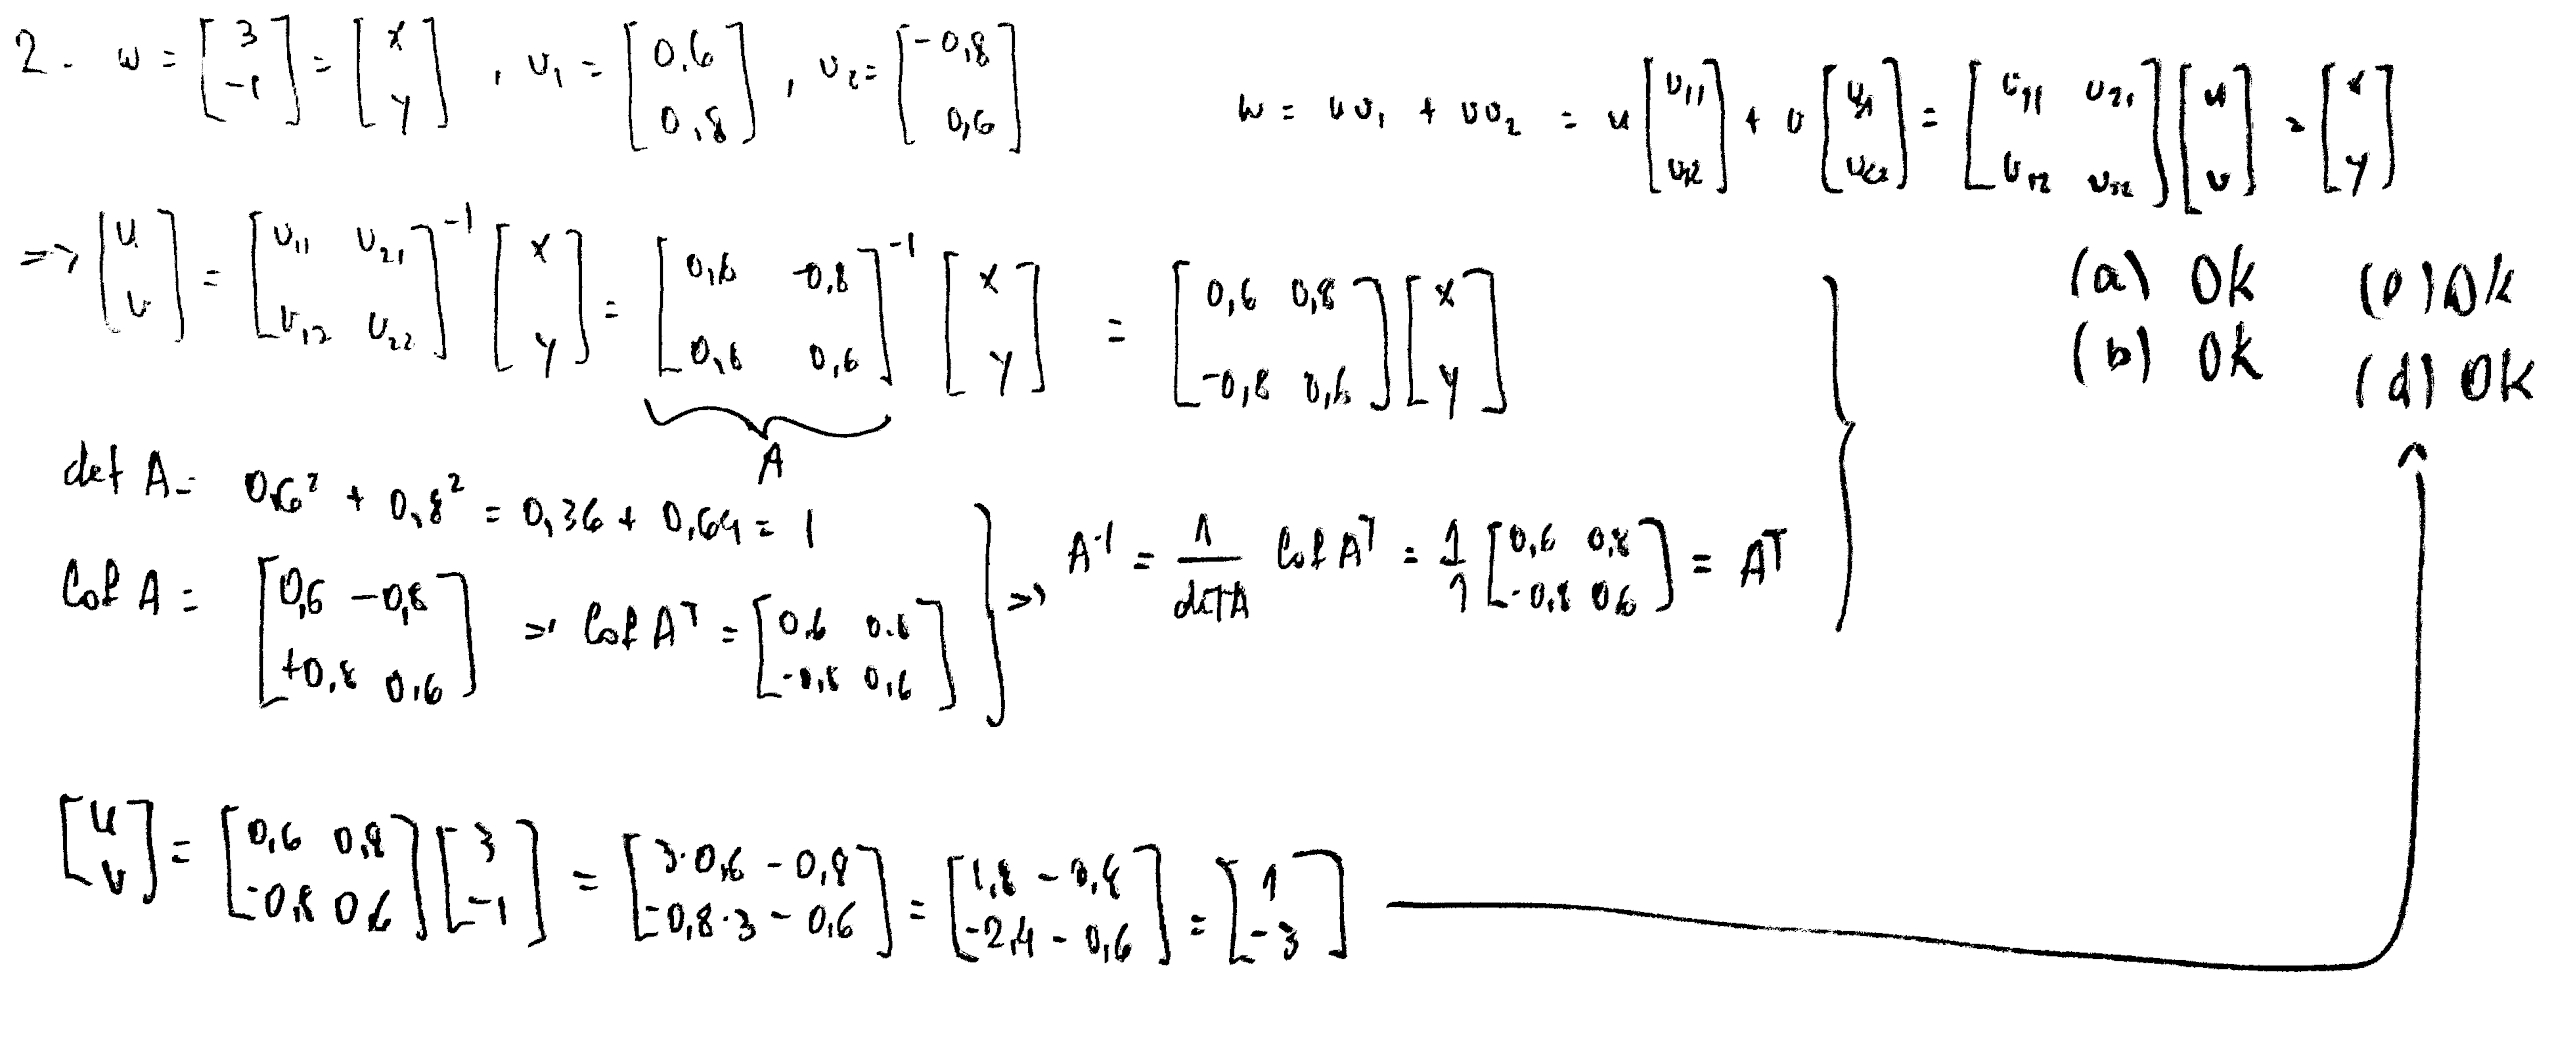 2. w = [3 -1] = [x y] , v₁ = [0,6 0,8] , v₂ = [-0,8 0,6]
w = u v₁ + v v₂ = u [v₁₁ v₁₂] + v [v₂₁ v₂₂] = [v₁₁ v₂₁ v₁₂ v₂₂] [u v] = [x y]
=> [u v] = [v₁₁ v₂₁ v₁₂ v₂₂]⁻¹ [x y] = [0,6 -0,8 0,8 0,6]⁻¹ [x y] = [0,6 0,8 -0,8 0,6] [x y]
A
(a) Ok (c) Ok
(b) Ok (d) Ok
det A = 0,6² + 0,8² = 0,36 + 0,64 = 1
Cof A = [0,6 -0,8 +0,8 0,6] => Cof Aᵀ = [0,6 0,8 -0,8 0,6] => A⁻¹ = 1/det A Cof Aᵀ = 1/1 [0,6 0,8 -0,8 0,6] = Aᵀ
[u v] = [0,6 0,8 -0,8 0,6] [3 -1] = [3·0,6 - 0,8 -0,8·3 - 0,6] = [1,8 - 0,8 -2,4 - 0,6] = [1 -3]